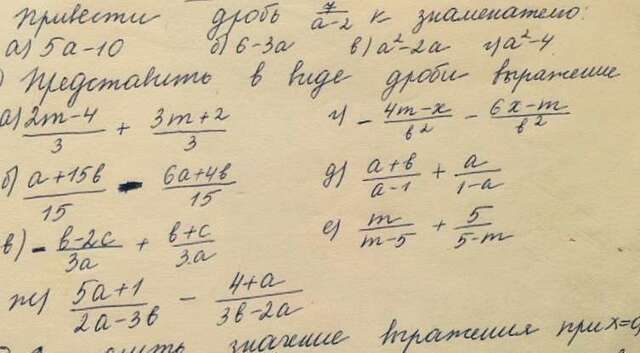 привести дробь 7/(а-2) к знаменателю:
а) 5а-10 б) 6-3а в) а²-2а г) а²-4
) Представить в виде дроби выражение
а) (2m-4)/3 + (3m+2)/3 г) -(4m-x)/в² - (6x-m)/в²
б) (а+15в)/15 - (6а+4в)/15 д) (а+в)/(а-1) + а/(1-а)
в) -(в-2с)/3а + (в+с)/3а е) m/(m-5) + 5/(5-m)
ж) (5а+1)/(2а-3в) - (4+а)/(3в-2а)
значение выражения при х=